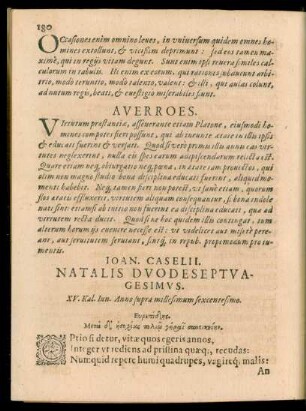 180
Occasiones enim omnino leues, in vniuersum quidem omnes ho-
mines extollunt, & vicissim deprimunt: sed eos tamen ma-
ximè, qui in regijs vitam degunt. Sunt enim ipsi reuera similes cal-
culorum in tabulis. Illi enim ex eorum, qui rationes subducunt arbi-
trio, modo teruntio, modo talento, valent: & isti, qui aulas colunt,
ad nutum regis, beati, & è vestigio miserabiles sunt.
AVERROES.
Virtutum præstantia, asseuerante etiam Platone, eiusmodi ho-
mines compotes fieri possunt, qui ab ineunte ætate in illis ipsis
& educati fuerint & versati. Quod si verò primis illis annis eas vir-
tutes neglexerint, nulla eis spes earum adipiscendarum relicta est.
Quare etiam
etiamsi non magno studio bona disciplina educati fuerint, aliquid
menti habebit. Neq, tamen fieri non potest,
sus ætatis effluxerit, virtutem aliquam consequantur, si bona indole
nati sint: etiamsi ab initio non fuerint ea disciplina educati, qua ad
virtutem recta ducit. Quod si ne hoc quidem illis contingat, tum
alterum horum ijs euenire necesse est: vt videlicet aut misere pere-
ant, aut seruitutem seruiant, sintq, in repub. propemodum pro iu-
mentis.
IOAN. CASELII.
NATALIS DVODESEPTVA-
GESIMVS.
XV. Kal. Iun. Anno supra millesimum sexcentesimo.
Ευριπίδης.
OPtio si detur, vitæ quos egeris annos,
Integer vt rediens ad pristina quæq, recudas:
Numquid repete humi quadrupes, vagireq, malis?
An